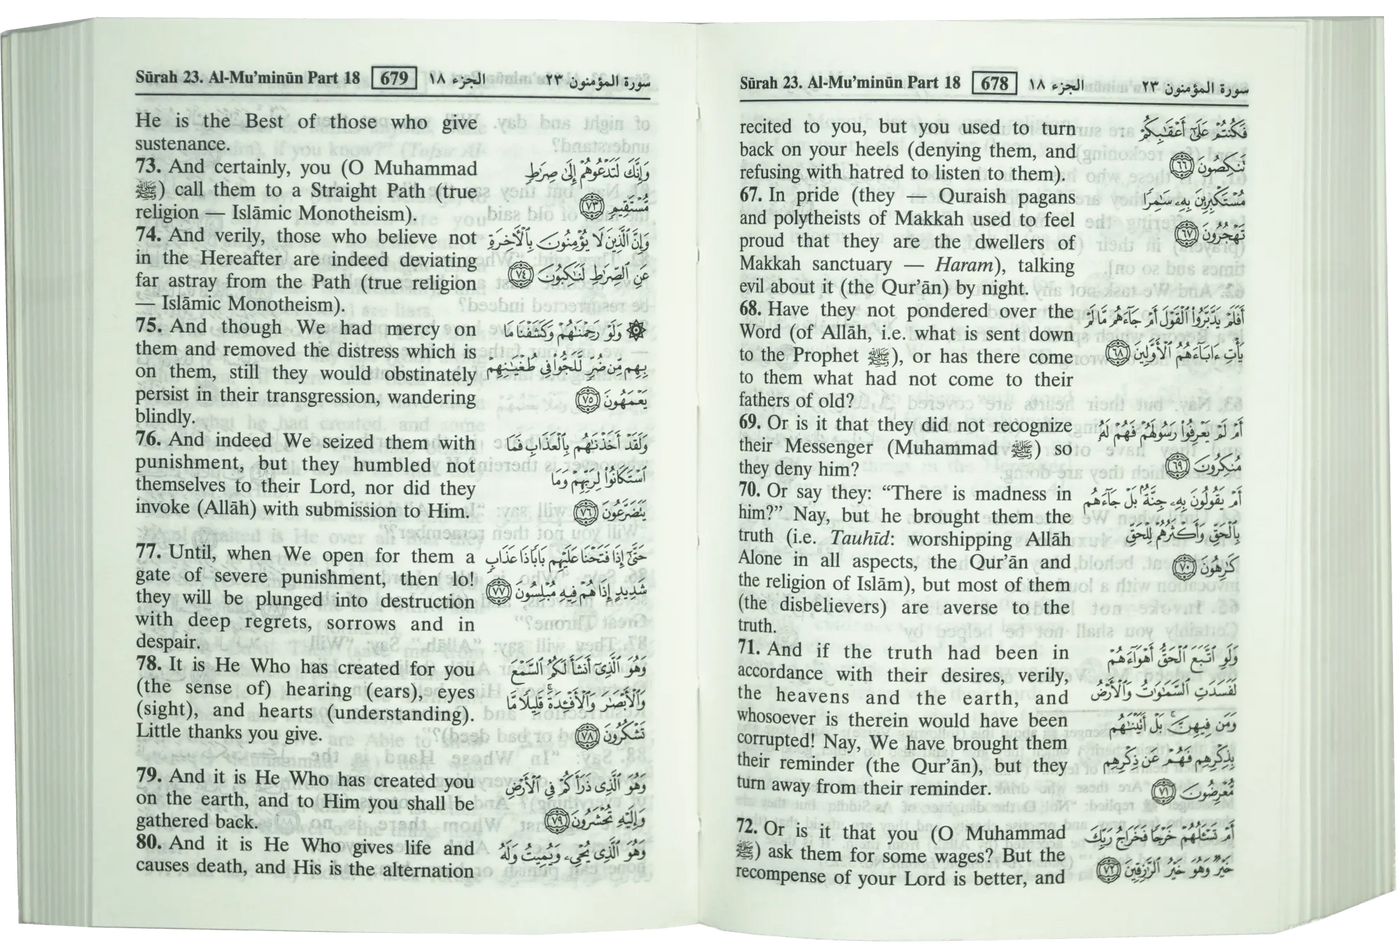 Sūrah 23. Al-Mu’minūn Part 18 678 الجزء ١٨ سورة المؤمنون ٢٣
recited to you, but you used to turn
back on your heels (denying them, and
refusing with hatred to listen to them).
67. In pride (they — Quraish pagans
and polytheists of Makkah used to feel
proud that they are the dwellers of
Makkah sanctuary — Haram), talking
evil about it (the Qur’ān) by night.
68. Have they not pondered over the
Word (of Allāh, i.e. what is sent down
to the Prophet ﷺ), or has there come
to them what had not come to their
fathers of old?
69. Or is it that they did not recognize
their Messenger (Muhammad ﷺ) so
they deny him?
70. Or say they: “There is madness in
him?” Nay, but he brought them the
truth (i.e. Tauhīd: worshipping Allāh
Alone in all aspects, the Qur’ān and
the religion of Islām), but most of them
(the disbelievers) are averse to the
truth.
71. And if the truth had been in
accordance with their desires, verily,
the heavens and the earth, and
whosoever is therein would have been
corrupted! Nay, We have brought them
their reminder (the Qur’ān), but they
turn away from their reminder.
72. Or is it that you (O Muhammad
ﷺ) ask them for some wages? But the
recompense of your Lord is better, and
فَكُنتُمْ عَلَىٰٓ أَعْقَٰبِكُمْ
تَنكِصُونَ ٦٦
مُسْتَكْبِرِينَ بِهِۦ سَٰمِرًا
تَهْجُرُونَ ٦٧
أَفَلَمْ يَدَّبَّرُوا۟ ٱلْقَوْلَ أَمْ جَآءَهُم مَّا لَمْ
يَأْتِ ءَابَآءَهُمُ ٱلْأَوَّلِينَ ٦٨
أَمْ لَمْ يَعْرِفُوا۟ رَسُولَهُمْ فَهُمْ لَهُۥ
مُنكِرُونَ ٦٩
أَمْ يَقُولُونَ بِهِۦ جِنَّةٌۢ بَلْ جَآءَهُم
بِٱلْحَقِّ وَأَكْثَرُهُمْ لِلْحَقِّ
كَٰرِهُونَ ٧٠
وَلَوِ ٱتَّبَعَ ٱلْحَقُّ أَهْوَآءَهُمْ
لَفَسَدَتِ ٱلسَّمَٰوَٰتُ وَٱلْأَرْضُ
وَمَن فِيهِنَّ ۚ بَلْ أَتَيْنَٰهُم
بِذِكْرِهِمْ فَهُمْ عَن ذِكْرِهِم
مُّعْرِضُونَ ٧١
أَمْ تَسْـَٔلُهُمْ خَرْجًا فَخَرَاجُ رَبِّكَ
خَيْرٌ ۖ وَهُوَ خَيْرُ ٱلرَّٰزِقِينَ ٧٢
Sūrah 23. Al-Mu’minūn Part 18 679 الجزء ١٨ سورة المؤمنون ٢٣
He is the Best of those who give
sustenance.
73. And certainly, you (O Muhammad
ﷺ) call them to a Straight Path (true
religion — Islāmic Monotheism).
74. And verily, those who believe not
in the Hereafter are indeed deviating
far astray from the Path (true religion
— Islāmic Monotheism).
75. And though We had mercy on
them and removed the distress which is
on them, still they would obstinately
persist in their transgression, wandering
blindly.
76. And indeed We seized them with
punishment, but they humbled not
themselves to their Lord, nor did they
invoke (Allāh) with submission to Him.
77. Until, when We open for them a
gate of severe punishment, then lo!
they will be plunged into destruction
with deep regrets, sorrows and in
despair.
78. It is He Who has created for you
(the sense of) hearing (ears), eyes
(sight), and hearts (understanding).
Little thanks you give.
79. And it is He Who has created you
on the earth, and to Him you shall be
gathered back.
80. And it is He Who gives life and
causes death, and His is the alternation
وَإِنَّكَ لَتَدْعُوهُمْ إِلَىٰ صِرَٰطٍ
مُّسْتَقِيمٍ ٧٣
وَإِنَّ ٱلَّذِينَ لَا يُؤْمِنُونَ بِٱلْأَخِرَةِ
عَنِ ٱلصِّرَٰطِ لَنَٰكِبُونَ ٧٤
۞ وَلَوْ رَحِمْنَٰهُمْ وَكَشَفْنَا مَا
بِهِم مِّن ضُرٍّ لَّلَجُّوا۟ فِى طُغْيَٰنِهِمْ
يَعْمَهُونَ ٧٥
وَلَقَدْ أَخَذْنَٰهُم بِٱلْعَذَابِ فَمَا
ٱسْتَكَانُوا۟ لِرَبِّهِمْ وَمَا
يَتَضَرَّعُونَ ٧٦
حَتَّىٰٓ إِذَا فَتَحْنَا عَلَيْهِم بَابًا ذَا عَذَابٍ
شَدِيدٍ إِذَا هُمْ فِيهِ مُبْلِسُونَ ٧٧
وَهُوَ ٱلَّذِىٓ أَنشَأَ لَكُمُ ٱلسَّمْعَ
وَٱلْأَبْصَٰرَ وَٱلْأَفْـِٔدَةَ ۚ قَلِيلًا مَّا
تَشْكُرُونَ ٧٨
وَهُوَ ٱلَّذِى ذَرَأَكُمْ فِى ٱلْأَرْضِ
وَإِلَيْهِ تُحْشَرُونَ ٧٩
وَهُوَ ٱلَّذِى يُحْىِۦ وَيُمِيتُ وَلَهُ